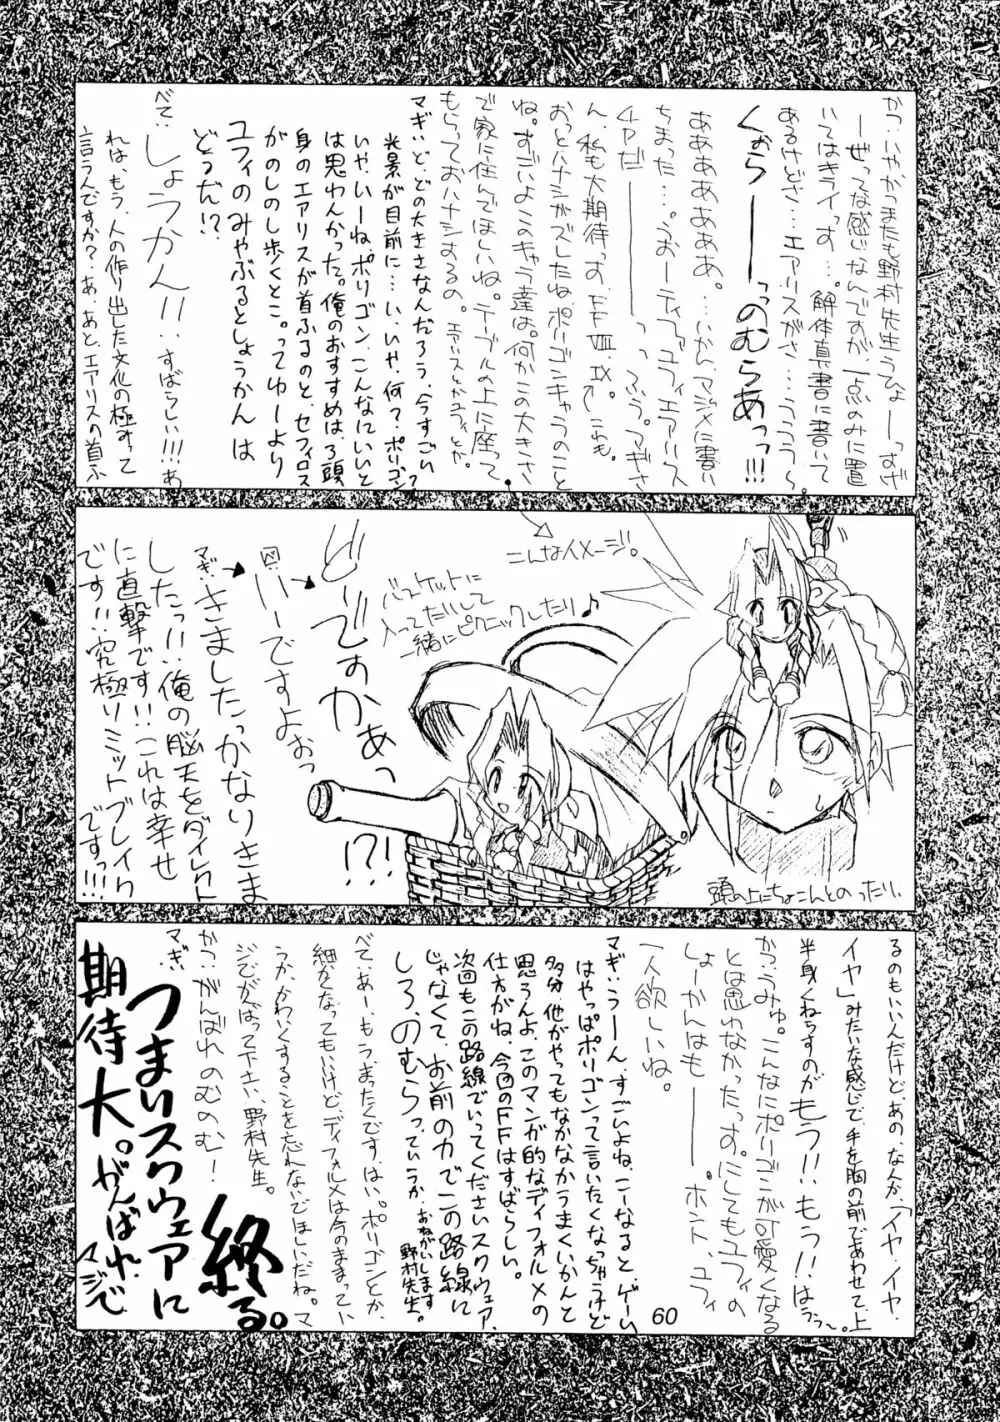 かつ:いやかつまたも野村先生うひょーっすぜ
ーぜってな感じなんですが、一点のみに置
いてはキライっす…。解体真書に書いて
あるけどさ…エアリスがさ…うううう〜。
くぉらーーっのむらあっっ!!!
ああああああ。…いかん、マジメに書い
ちまった…。うおーティファユフィエアリス
チャだーーーっっ。ふう。マギさ
ん、私も大期待っす、FFⅧ Ⅸ←これも。
おっとハナシがズレたね。ポリゴンキャラのこと
ね。すごいよこのキャラ達は。何かこの大きさ
で家に住んでほしいね。テーブルの上に座って
もらっておハナシするの。エアリスとかユフィとか。
マギ:ど、どの大きさなんだろう、今すごい
光景が目前に…い、いや、何?ポリゴン?
いや、いーね、ポリゴン、こんなにいいと
は思わんかった。俺のおすすめは、3頭
身のエアリスが首ふるのと、セフィロス
がのしのし歩くとこ。ってゆーより
ユフィのみやぶるとしょうかんは
どうだ!?
べて:しょうかん!!…すばらしい!!!あ
れは、もう、人の作り出した文化の極すって
言うんですか?あ、あと、エアリスの首ふ
こんなイメージ。
バスケットに
入ってたりして
一緒にピクニックしたり♪
頭の上にちょこんとのったり
どーですかあっ
!?!
いーですよおっ
マギ:きましたっかなりきま
したっ!!俺の脳天をダイレクト
に直撃です!!これは幸せ
です!!究極リミットブレイク
ですっ!!!
るのもいい人だけど、あの、なんか「イヤ、イヤ、
イヤ」みたいな感じで、手を胸の前であわせて上
半身くねらすのがもう!!もう!!はうう〜。
かつ:うみゅ。こんなにポリゴンが可愛くなる
とは思わなかったっす。にしてもユフィの
しょーかんはもーーー。ホント、ユフィ
一人欲しいね。
マギ:うーん、すごいよね、こーなると、ゲーム
はやっぱポリゴンって言いたくなっちゃうけど
多分、他がやってもなかなかうまくいかんと
思ろんよ、このマンガ的なディフォルメの
仕方がね、今回のFFはすばらしい。
次回もこの路線でいってくださいスクウェア、
じゃなくて、お前の力でこの路線に
しろ、のむらっていうか、おねがいします
野村先生。
べて:あー、もう、まったくです、はい。ポリゴンとか、
細かくなってもいいけどディフォルメは今のままってい
うか、かわいくすることを忘れないでほしいだね。マ
ジでがんばって下さい、野村先生。
かつ:がんばれのむのむ!
マギ:
つまりスクウェアに
期待大。がんばれ、マジで
終る。
60